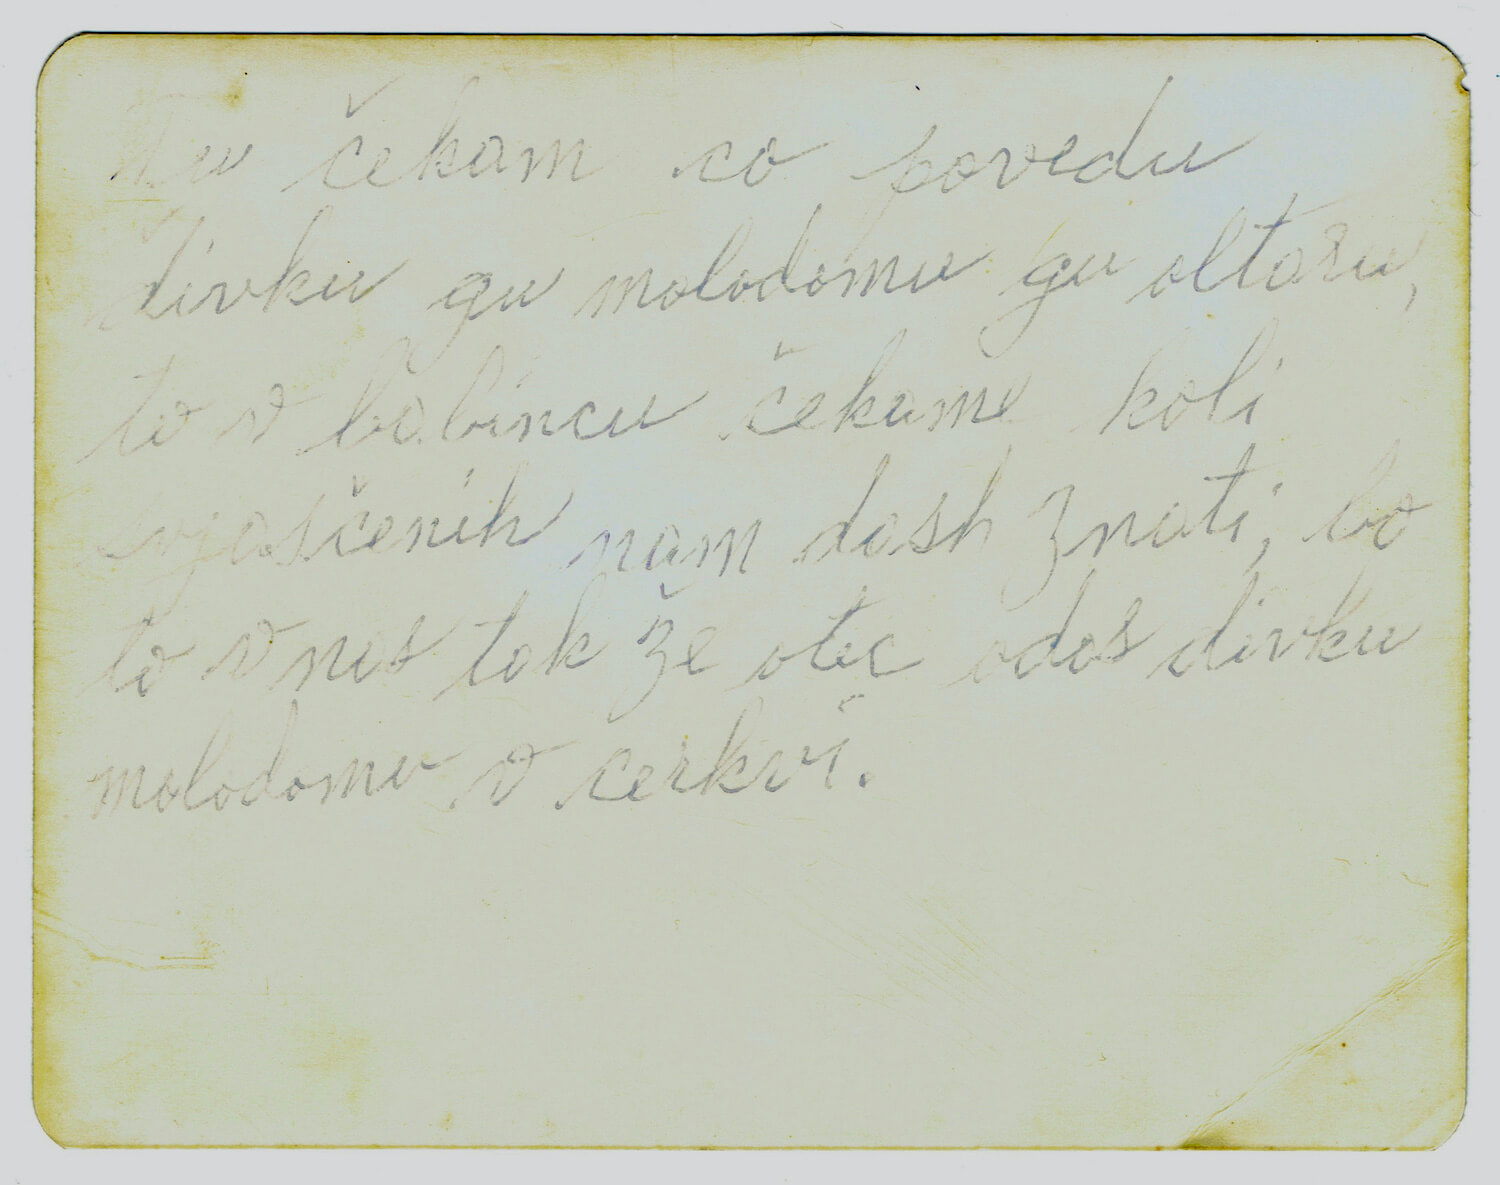 Tu čekam co povedu
divku gu molodomu gu oltaru,
to v babincu čekame koli
svjaščenik nam dash znati, bo
to v nas tak že otec odas divku
molodomu v cerkvi.